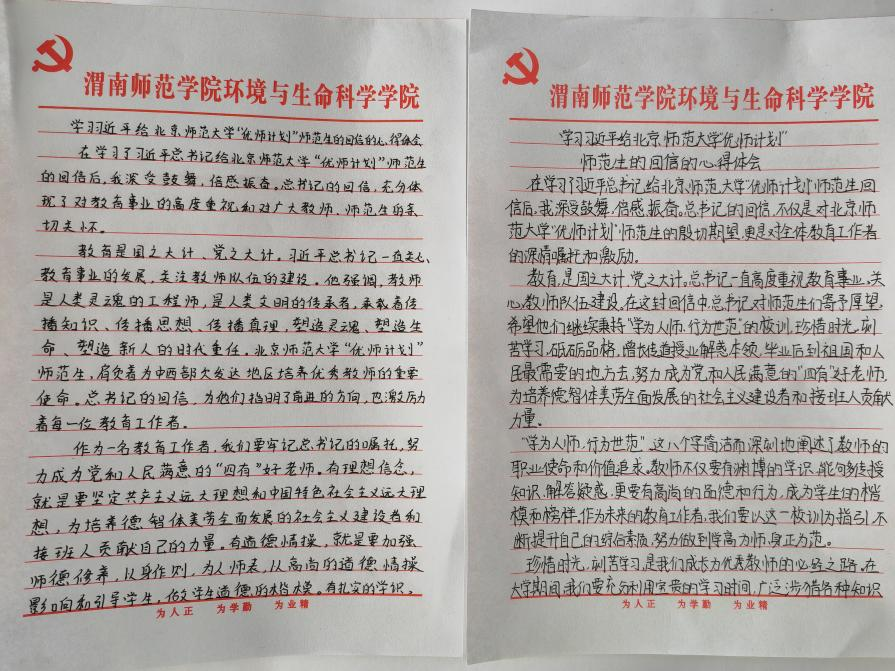 渭南师范学院环境与生命科学学院
学习习近平给北京师范大学“优师计划”师范生的回信的心得体会
在学习了习近平总书记给北京师范大学“优师计划”师范生
的回信后,我深受鼓舞,倍感振奋。总书记的回信,充分体
现了对教育事业的高度重视和对广大教师、师范生的亲
切关怀。
教育是国之大计、党之大计。习近平总书记一直关心
教育事业的发展,关注教师队伍的建设。他强调,教师
是人类灵魂的工程师,是人类文明的传承者,承载着传
播知识、传播思想、传播真理,塑造灵魂、塑造生
命、塑造新人的时代重任。北京师范大学“优师计划”
师范生,肩负着为中西部欠发达地区培养优秀教师的重要
使命。总书记的回信,为他们指明了前进的方向,也激励
着每一位教育工作者。
作为一名教育工作者,我们要牢记总书记的嘱托,努
力成为党和人民满意的“四有”好老师。有理想信念,
就是要坚定共产主义远大理想和中国特色社会主义远大理
想,为培养德智体美劳全面发展的社会主义建设者和
接班人贡献自己的力量。有道德情操,就是要加强
师德修养,以身作则,为人师表,以高尚的道德情操
影响和引导学生,做学生道德的楷模。有扎实的学识,
为人正 为学勤 为业精
渭南师范学院环境与生命科学学院
“学习习近平给北京师范大学“优师计划”
师范生的回信的心得体会
在学习了习近平总书记给北京师范大学“优师计划”师范生回
信后,我深受鼓舞,倍感振奋。总书记的回信,不仅是对北京师
范大学“优师计划”师范生的殷切期望,更是对全体教育工作者
的深情嘱托和激励。
教育,是国之大计、党之大计。总书记一直高度重视教育事业,关
心教师队伍建设,在这封回信中,总书记对师范生们寄予厚望,
希望他们继续秉持“学为人师,行为世范”的校训,珍惜时光,刻
苦学习,砥砺品格,增长传道授业解惑本领,毕业后到祖国和人
民最需要的地方去,努力成为党和人民满意的“四有”好老师,
为培养德智体美劳全面发展的社会主义建设者和接班人贡献
力量。
“学为人师,行为世范”,这八个字简洁而深刻地阐述了教师的
职业使命和价值追求。教师不仅要有渊博的学识,能够传授
知识、解答疑惑,更要有高尚的品德和行为,成为学生的楷
模和榜样。作为未来的教育工作者,我们要以这一校训为指引,不
断提升自己的综合素质,努力做到学高为师、身正为范。
珍惜时光,刻苦学习,是我们成长为优秀教师的必经之路。在
大学期间,我们要充分利用宝贵的学习时间,广泛涉猎各种知识
为人正 为学勤 为业精